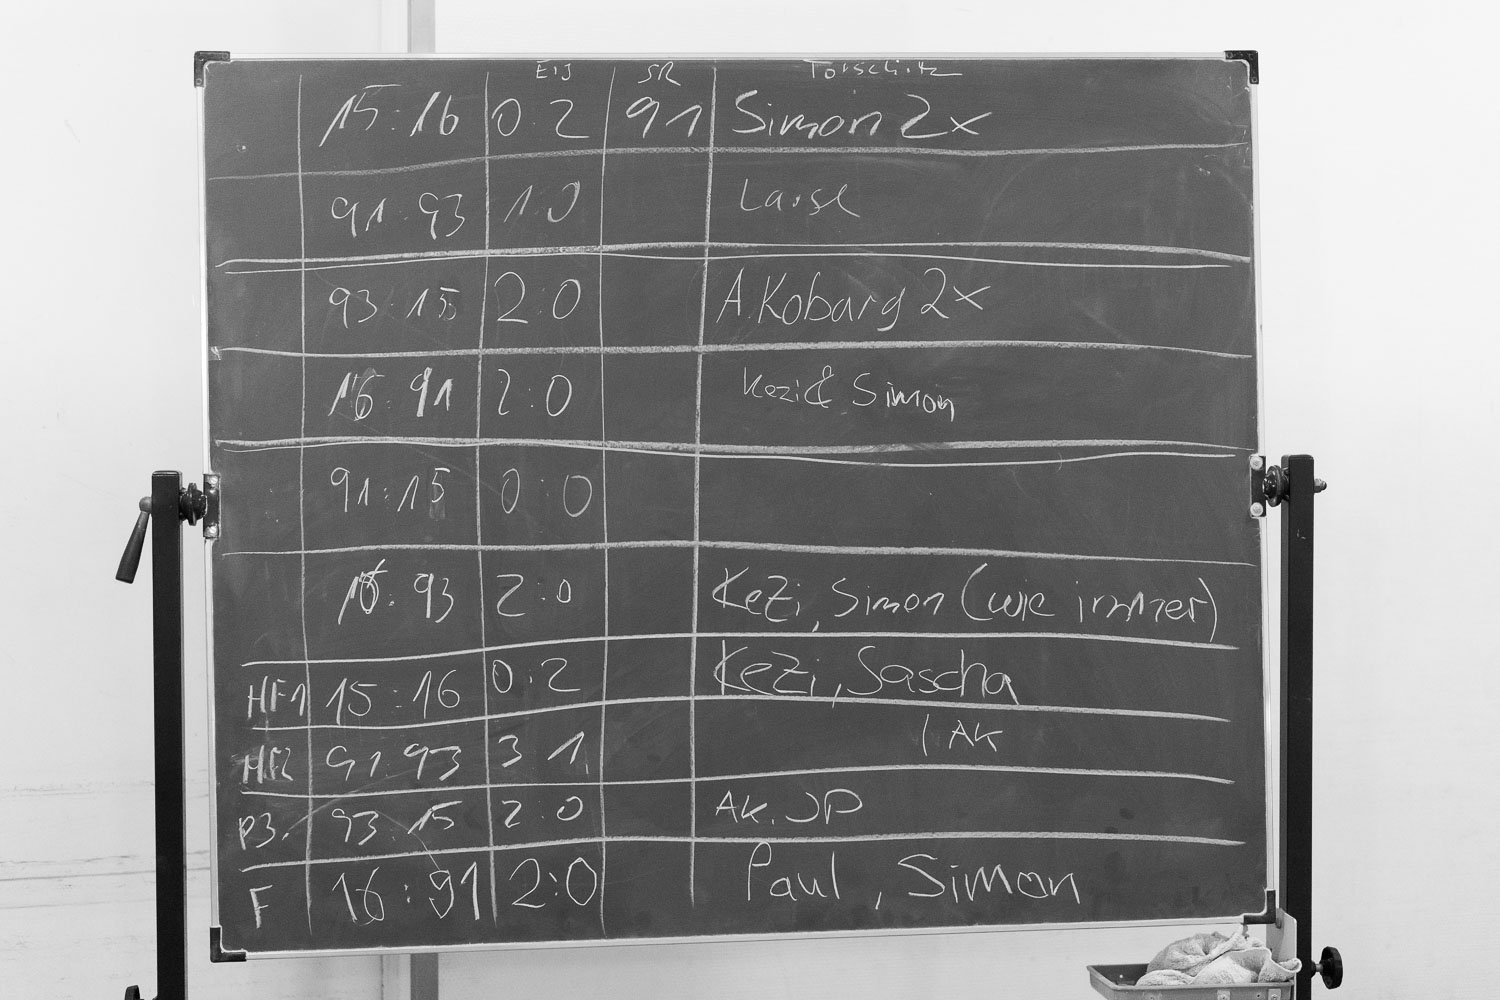 SR Torschütz
15:16 0:2 91 Simon 2x
91:93 1:0
93:15 2:0 A.Kobarg 2x
16:91 2:0 Kezi & Simon
91:15 0:0
16:93 2:0 Kezi, Simon (wie immer)
HF1 15:16 0:2 Kezi, Sascha
HF2 91:93 3:1 / AK
P3. 93:15 2:0 AK. JP
F 16:91 2:0 Paul, Simon